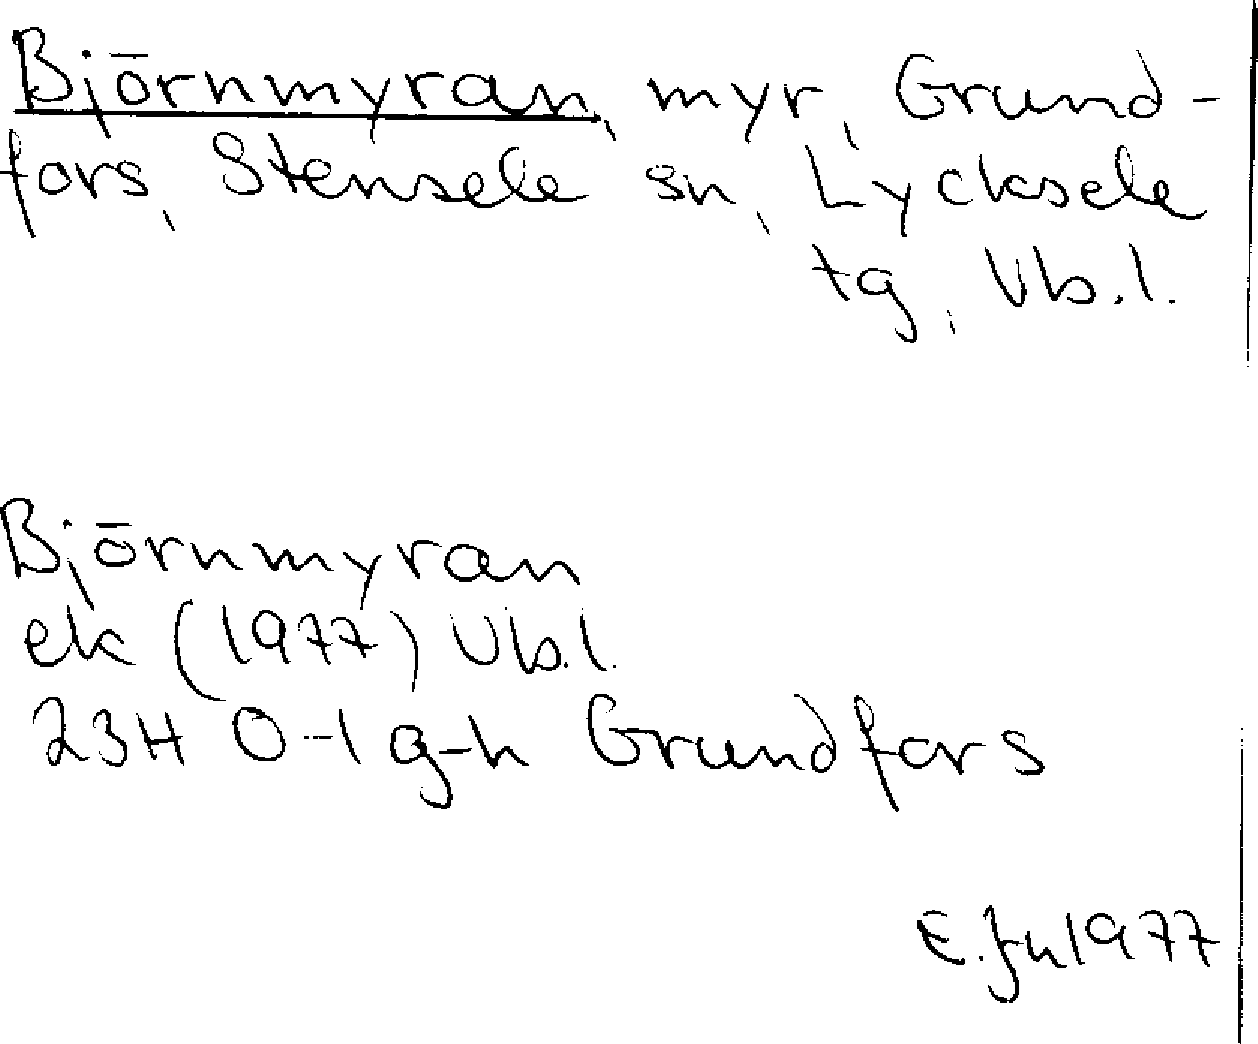 Björnmyran, myr, Grund-
fors, Stensele sn, Lycksele
tg, Vb.l.
Björnmyran
ek (1977) Vb.l.
23H 0-1 g-h Grundfors
E. 1977